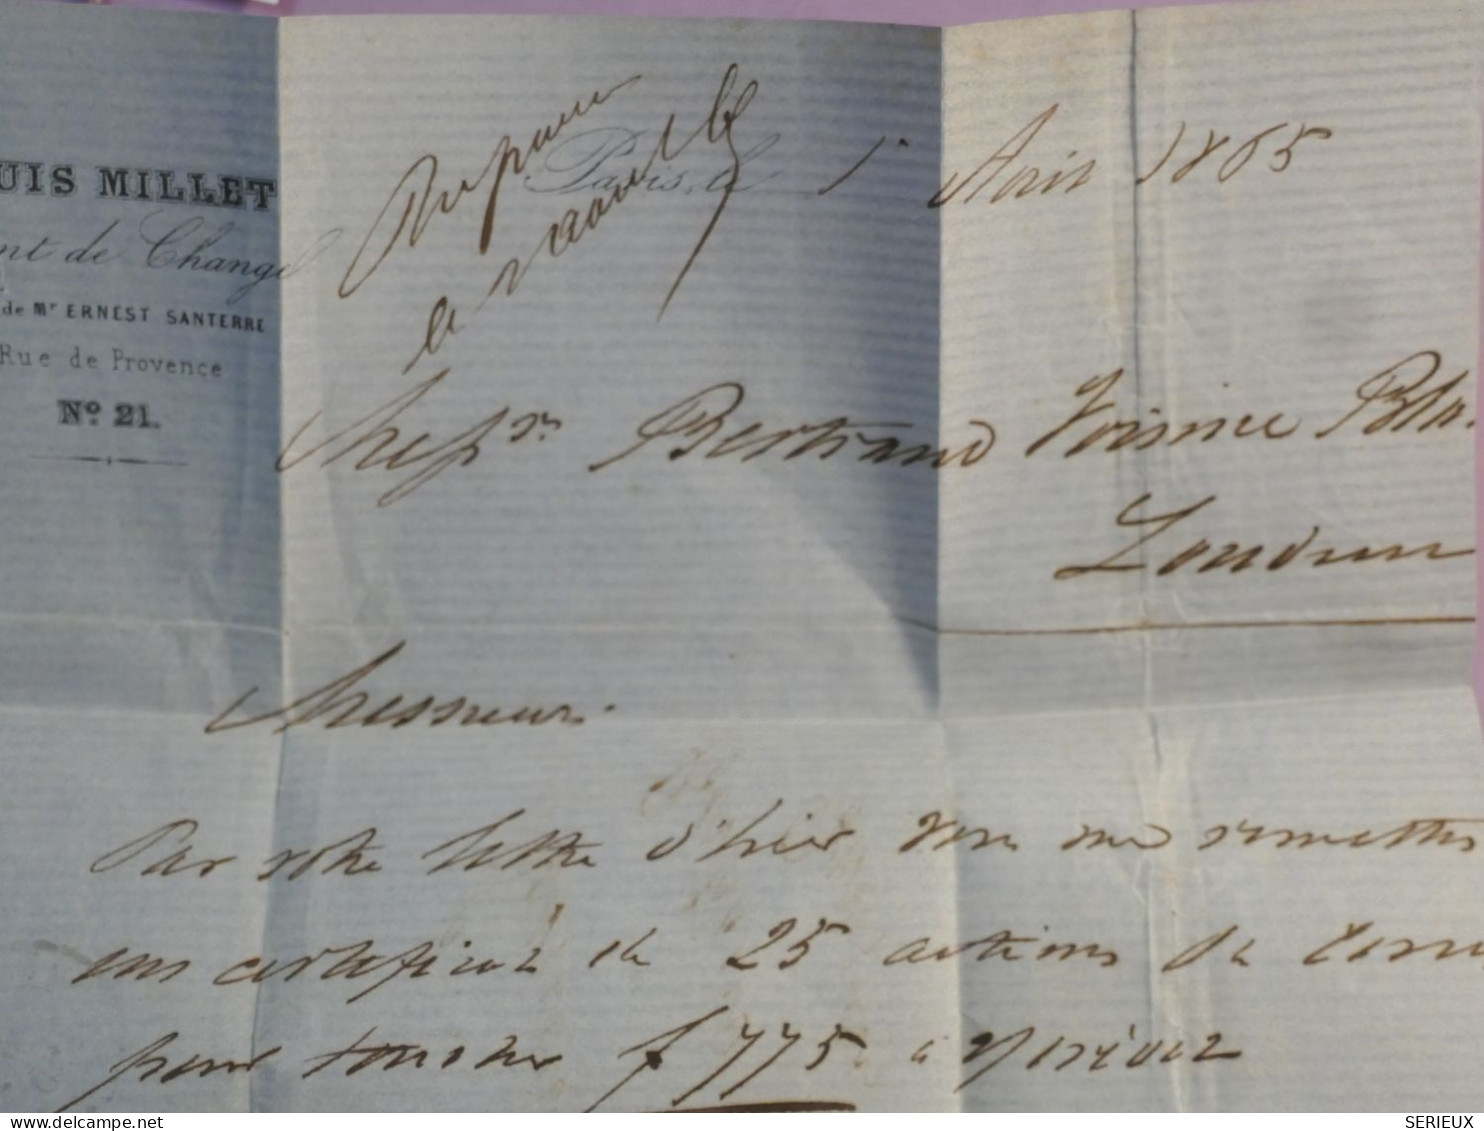 UIS MILLET
nt de Change
de Mr ERNEST SANTERRE
Rue de Provence
No 21.
Paris, le 1er Août 1865
Messrs Bertrand Voisin
Londres
Messieurs
Par votre lettre d'hier vous me remettez
un certificat de 25 actions de
pour toucher f 775
delcampe.net
SERIEUX